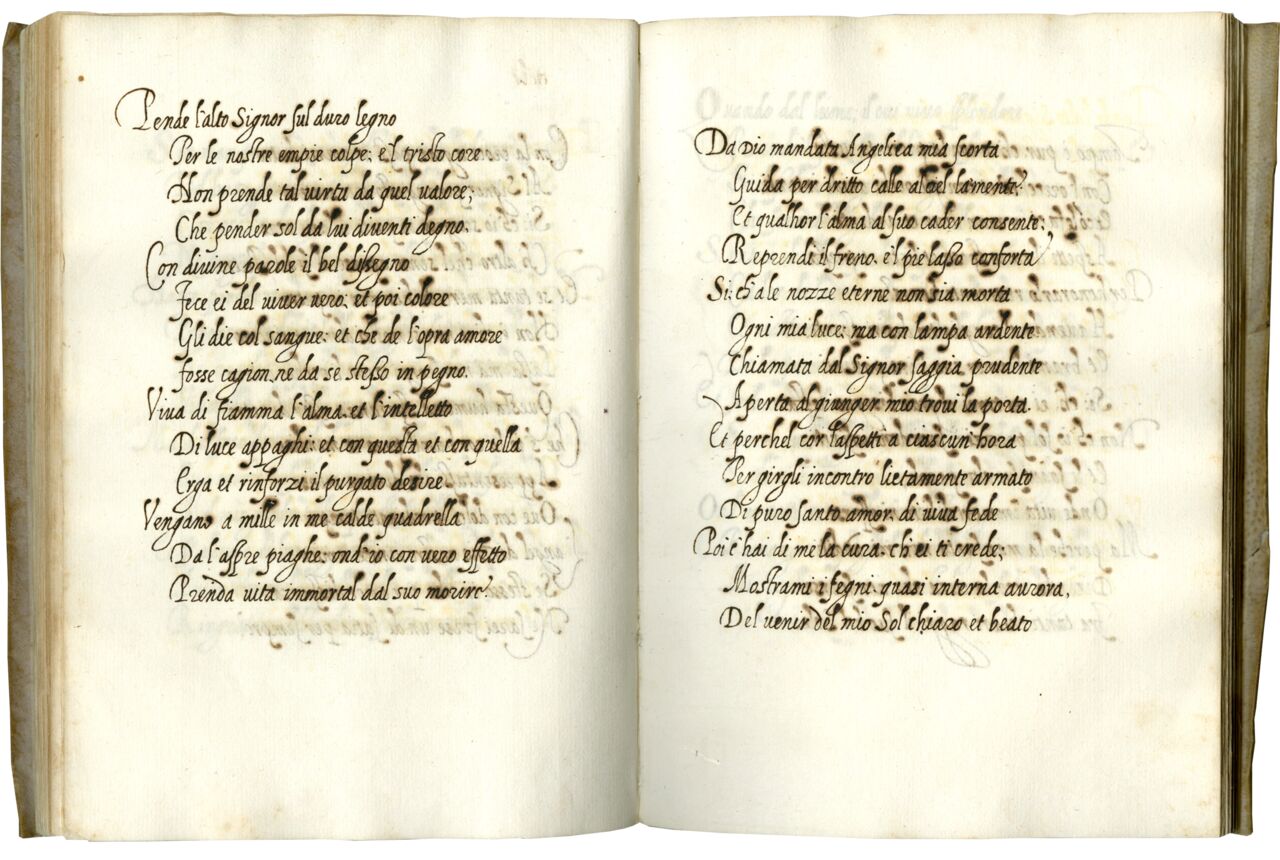 Pende l'alto Signor sul duro legno
Per le nostre empie colpe; e'l tristo core
Non prende tal virtu da quel valore;
Che pender sol da lui diventi degno.
Con divine parole il bel dissegno
Fece ei del viver vero; et poi colore
Gli die col sangue: et che de l'opra amore
Fosse cagion, ne da se stesso in pegno.
Viva di fiamma l'alma, et l'intelletto
Di luce appaghi; et con questa et con quella
Erga et rinforzi il purgato desire
Vengano a mille in me calde quadrella
Da l'aspre piaghe; ond'io con vero effetto
Prenda vita immortal dal suo morire.
Da Dio mandata Angelica mia scorta
Guida per dritto calle al ciel la mente;
Et qualhor l'alma al suo cader consente;
Reprendi il freno, e'l pie lasso conforta
Si; ch'a le nozze eterne non sia morta
Ogni mia luce; ma con lampa ardente
Chiamata dal Signor saggia, prudente
Aperta al giunger mio trovi la porta.
Et perche'l cor l'aspetti a ciascun'hora
Per girgli incontro lietamente armato
Di puro santo amor, di viva fede
Poi c'hai di me la cura, ch'ei ti crede;
Mostrami i segni, quasi interna aurora,
Del venir del mio Sol chiaro et beato